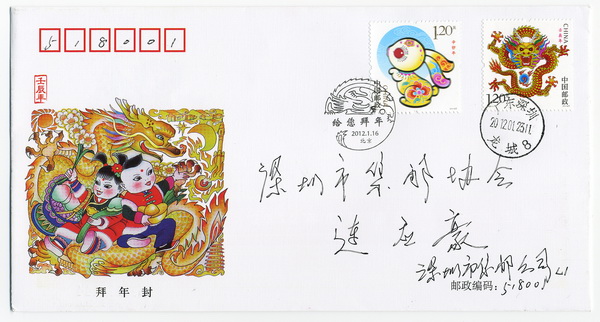 518001
壬辰年
拜年封
1.20元
辛卯年
中国邮政
CHINA
壬辰年
中国邮政
1.20元
给您拜年
2012.1.16
北京
广东深圳
2012.01.25 11
龙城8
深圳市集邮协会
连应豪
深圳市集邮公司
邮政编码:518001